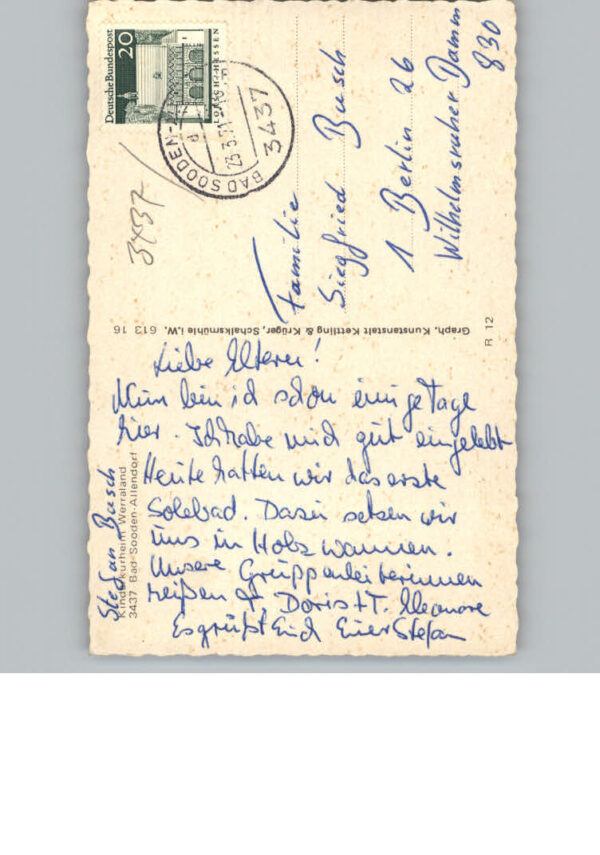 Deutsche Bundespost
20
LORSCH/HESSEN
BAD SOODEN-
d
23.3.71
3437
3437
Familie
Siegfried Busch
1 Berlin 26
Wilhelmsruher Damm
830
Graph. Kunstanstalt Kettling & Krüger, Schalksmühle i.W. 613 16
R 12
Liebe Eltern!
Nun bin ich schon einige Tage
hier. Ich habe mich gut eingelebt
Heute hatten wir das erste
Solebad. Dabei setzen wir
uns in Holzwannen.
Unsere Gruppenleiterinnen
heißen T. Doris + T. Eleonore
Es grüßt Euch Euer Stefan
Stefan Busch
Kinderkurheim Werraland
3437 Bad Sooden-Allendorf